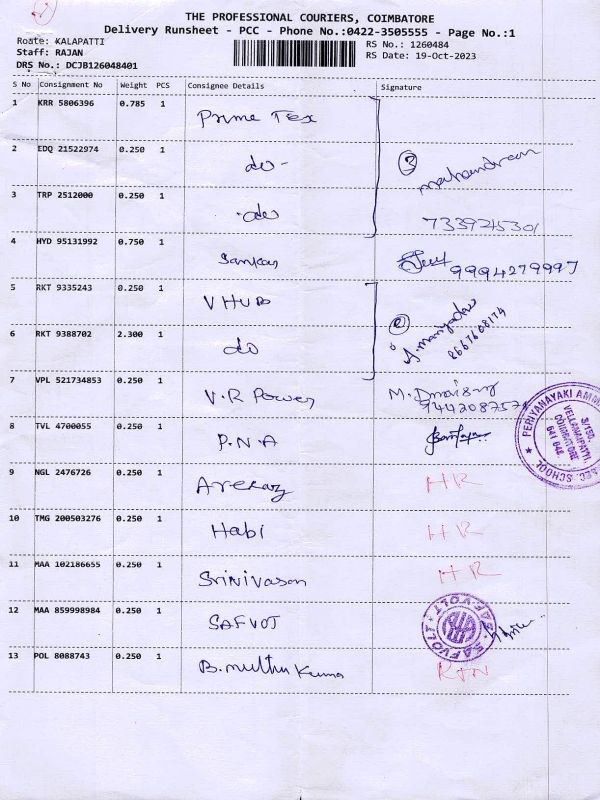 THE PROFESSIONAL COURIERS, COIMBATORE
Delivery Runsheet - PCC - Phone No.:0422-3505555 - Page No.:1
Route: KALAPATTI
Staff: RAJAN
DRS No.: DCJB126048401
RS No.: 1260484
RS Date: 19-Oct-2023
S No Consignment No Weight PCS Consignee Details Signature
1 KRR 5806396 0.785 1 Prime Tex
2 EDQ 21522974 0.250 1 do -
3 TRP 2512000 0.250 1 do
3
7339245301
4 HYD 95131992 0.750 1 Sankar 9994279997
5 RKT 9335243 0.250 1 V HUB
6 RKT 9388702 2.300 1 do
2
8667608174
7 VPL 521734853 0.250 1 V.R Power
8 TVL 4700055 0.250 1 P.N.A
PERIYANAYAKI AMM
SEC. SCHOOL
3/150,
VELLANAIPATTI
COIMBATORE
641 048.
9 NGL 2476726 0.250 1 HR
10 TMG 200503276 0.250 1 Habi HR
11 MAA 102186655 0.250 1 Srinivasan HR
12 MAA 859998984 0.250 1 SAFVOT
SAFVOLT
SAFVOLT
13 POL 8088743 0.250 1 B. muthu Kumar